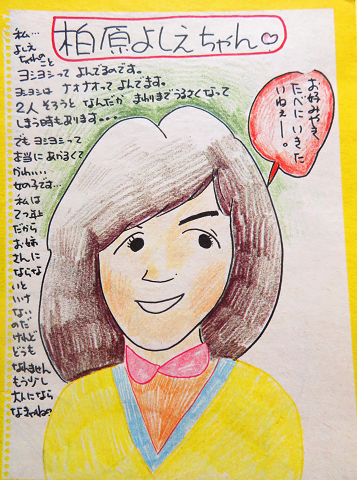 柏原よしえちゃん♡
私…
よしえ
ちゃんのこと
ヨシヨシって よんでるのです。
ヨシヨシは ナオナオって よんでます。
2人 そろうと なんだか まわりまでうるさくなって
しまう時もあります…
でも ヨシヨシって
本当に あかるくて
かわいい
女の子です…
私は
2つ年上
だから
お姉
さんに
ならな
いと
いけ
ない
のだ
けれど
どうも
なれません
もう少し
大人になら
なきゃね?
お好みやき、
たべに いきた
いねぇー。